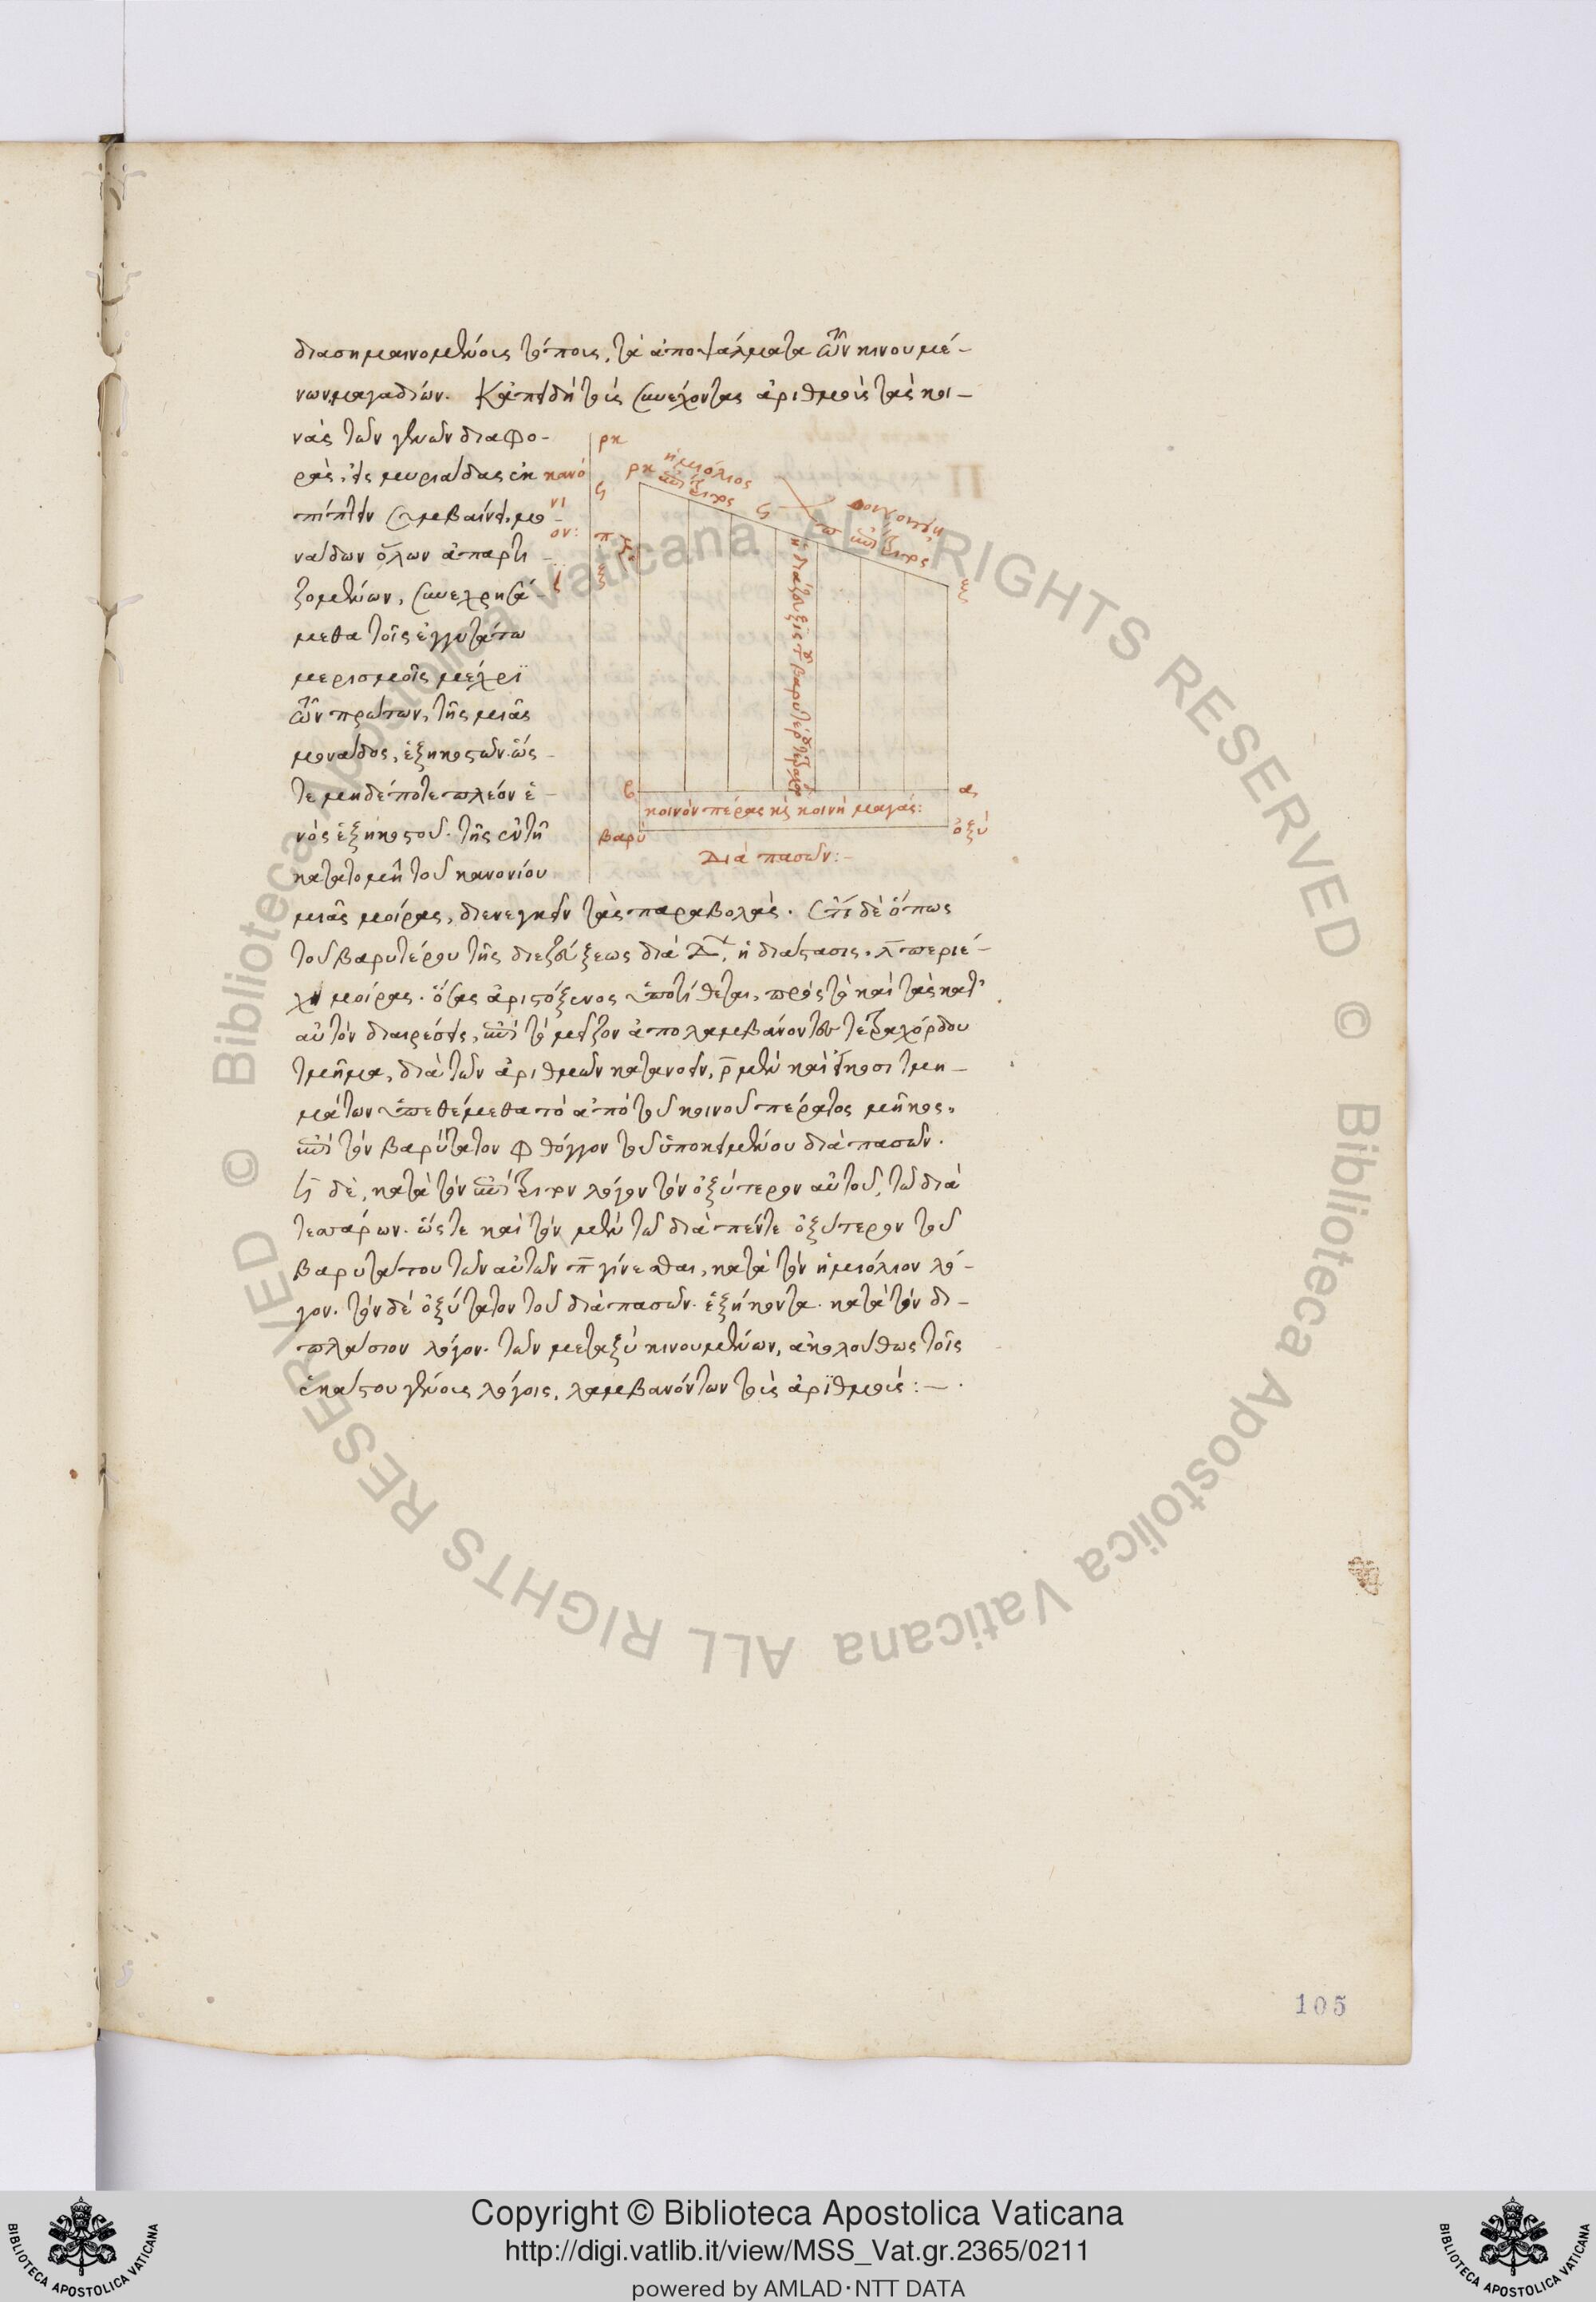 διασημαινομένοις τόποις, τὰ ἀποψάλματα τῶν κινουμέ-
νων μαγαδίων. Κἀπειδὴ τοὺς συνεχόντας ἀριθμοὺς τὰς κοι-
νὰς τῶν γενῶν διαφο-
ρὰς, εἰς μυριάδας ἐκ
πίπτειν συμβαίνει, μο
νάδων ὅλων ἀπαρτι-
ζομένων, συνεχρησά-
μεθα τοῖς ἐγγυτάτω
μερισμοῖς μέχρϊ
τῶν πρώτων, τῆς μιᾶς
μονάδος, ἑξηκοστῶν. ὥς-
τε μηδέποτε πλέον ἑ-
νὸς ἑξηκοστοῦ. τῆς ἐν τῇ
κατατομῇ τοῦ κανονίου
μιᾶς μοίρας, διενεγκεῖν τὰς παραβολάς. ἔτι δὲ ὅπως
τοῦ βαρυτέρου τῆς διεζεύξεως διὰ Δ, ἡ διάστασις. λ̅ περιέ-
χῃ μοίρας. ὅσας ἀριστόξενος ὑποτίθεται, πρὸς τὸ καὶ τὰς κατ'
αὐτὸν διαιρέσεις, ἐπὶ τὸ μεῖζον ἀπολαμβάνοντος τετραχόρδου
τμῆμα, διὰ τῶν ἀριθμῶν κατανοεῖν, ρ̅ μὲν καὶ εἴκοσι τμη-
μάτων ὑπεθέμεθα τὸ ἀπὸ τοῦ κοινοῦ πέρατος μῆκος,
ἐπὶ τὸν βαρύτατον φθόγγον τοῦ ὑποκειμένου διὰ πασῶν.
ϟ̅ δὲ, κατὰ τὸν ἐπίτριτον λόγον τὸν ὀξύτερον αὐτοῦ, τῷ διὰ
τεσσάρων. ὥςτε καὶ τὸν μὲν τῷ διὰ πέντε ὀξύτερον τοῦ
βαρυτάτου τῶν αὐτῶν π̅ γίνεσθαι, κατὰ τὸν ἡμιόλιον λό-
γον. τὸν δὲ ὀξύτατον τοῦ διὰ πασῶν. ἑξήκοντα. κατὰ τὸν δι-
πλάσιον λόγον. τῶν μεταξὺ κινουμένων, ἀκολούθως τοῖς
ἑκάστου γένους λόγοις, λαμβανόντων τοὺς ἀρϊθμούς:—
κανό
νι
ον:
ρκ
ϟ
π
ξ
ρκ
ἡμιόλιος
ἐπίτριτος
ϟ
π
ἐπίτριτος
ξ
ἡ διάζευξις τοῦ βαρυτέρου τετραχόρδου
β
α
κοινὸν πέρας καὶ κοινὴ μαγάς:
βαρὺ
ὀξύ
Διὰ πασῶν:—
105
Copyright © Biblioteca Apostolica Vaticana
http://digi.vatlib.it/view/MSS_Vat.gr.2365/0211
powered by AMLAD·NTT DATA
BIBLIOTECA APOSTOLICA VATICANA
BIBLIOTECA APOSTOLICA VATICANA
© Biblioteca Apostolica Vaticana ALL RIGHTS RESERVED © Biblioteca Apostolica Vaticana ALL RIGHTS RESERVED